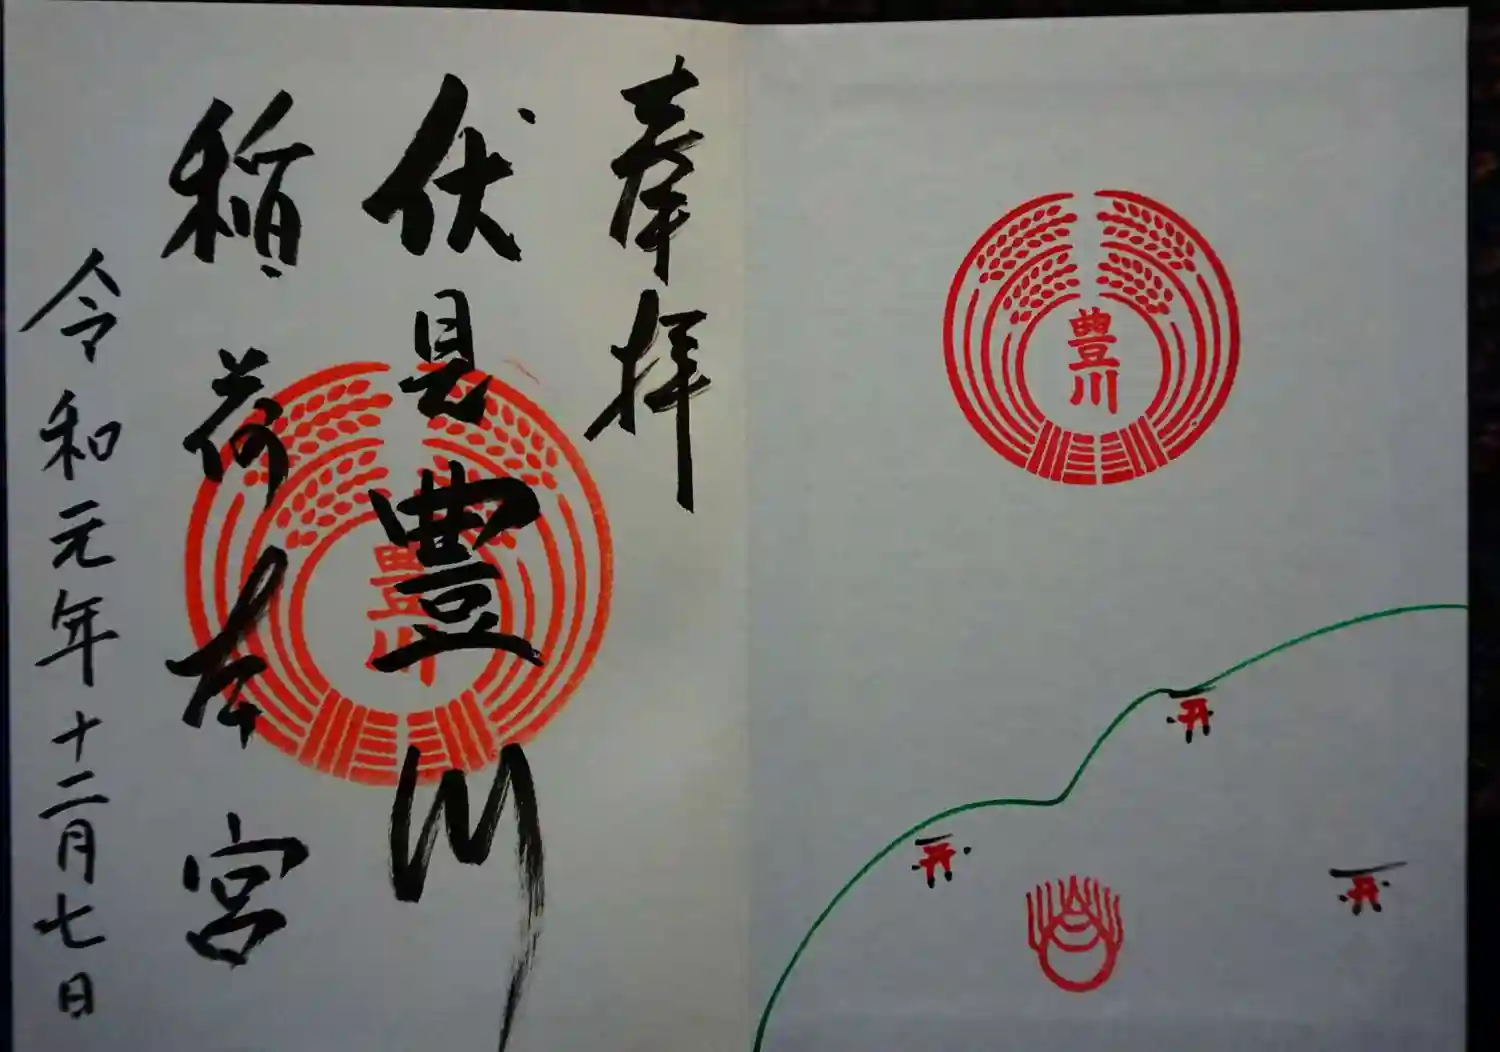 豊川
奉拝
伏見豊川
稲荷本宮
豊川
令和元年十二月七日